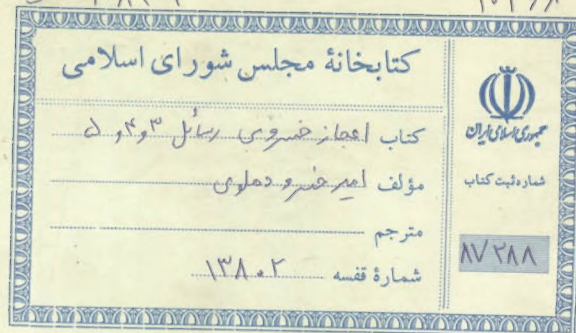 کتابخانهٔ مجلس شورای اسلامی
کتاب اعجاز خسروی رسائل ۳ و ۴ و ۵
مؤلف امیر خسرو دهلوی
مترجم
شمارهٔ قفسه ۱۳۸۰۲
جمهوری اسلامی ایران
شماره ثبت کتاب
۸۷۲۸۸